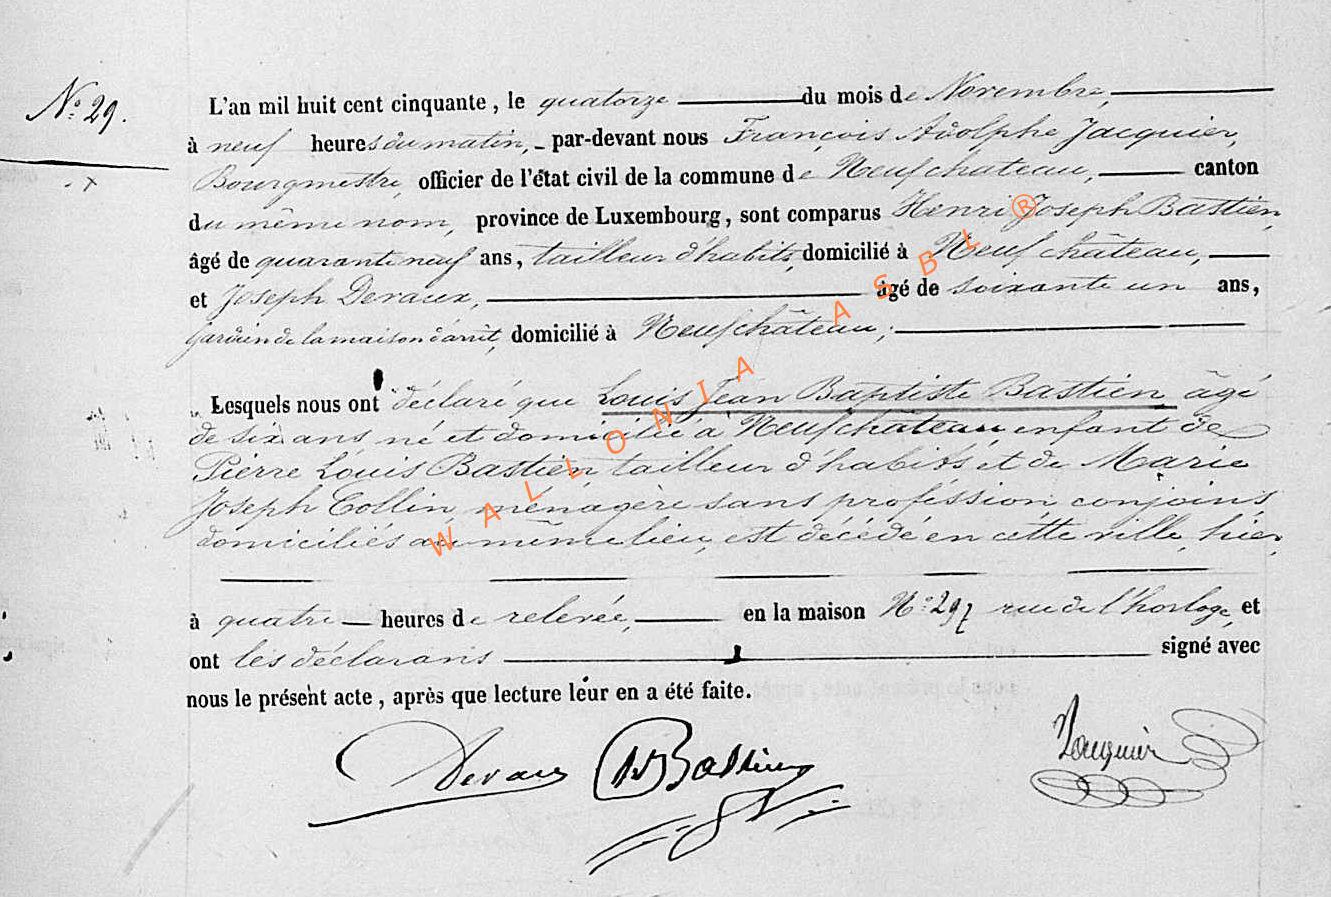 N.° 29.
L'an mil huit cent cinquante, le quatorze du mois de Novembre,
à neuf heures du matin, par-devant nous François Adolphe Jacquier,
Bourgmestre, officier de l'état civil de la commune de Neufchateau, canton
du même nom, province de Luxembourg, sont comparus Henri Joseph Bastien,
âgé de quarante neuf ans, tailleur d'habits, domicilié à Neufchâteau,
et Joseph Devaux, âgé de soixante un ans,
Gardien de la maison d'arrêt, domicilié à Neufchâteau;
Lesquels nous ont déclaré que Louis Jean Baptiste Bastien âgé
de six ans né et domicilié à Neufchâteau, enfant de
Pierre Louis Bastien, tailleur d'habits et de Marie
Joseph Collin ménagère sans profession, conjoins,
domiciliés au même lieu, est décédé en cette ville, hier,
à quatre heures de relevée, en la maison N.° 297 rue de l'horloge, et
ont les déclarans signé avec
nous le présent acte, après que lecture leur en a été faite.
Devaux Bastien Jacquier
WALLONIA ASBL ®